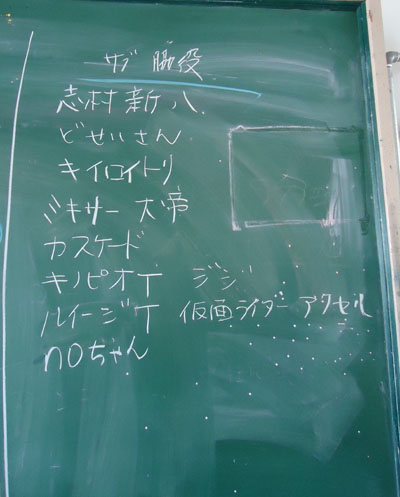 サブ 脇役
志村新八
どせいさん
キイロイトリ
ミキサー大帝
カスケード
キノピオT ジジ
ルイージT 仮面ライダーアクセル
noちゃん